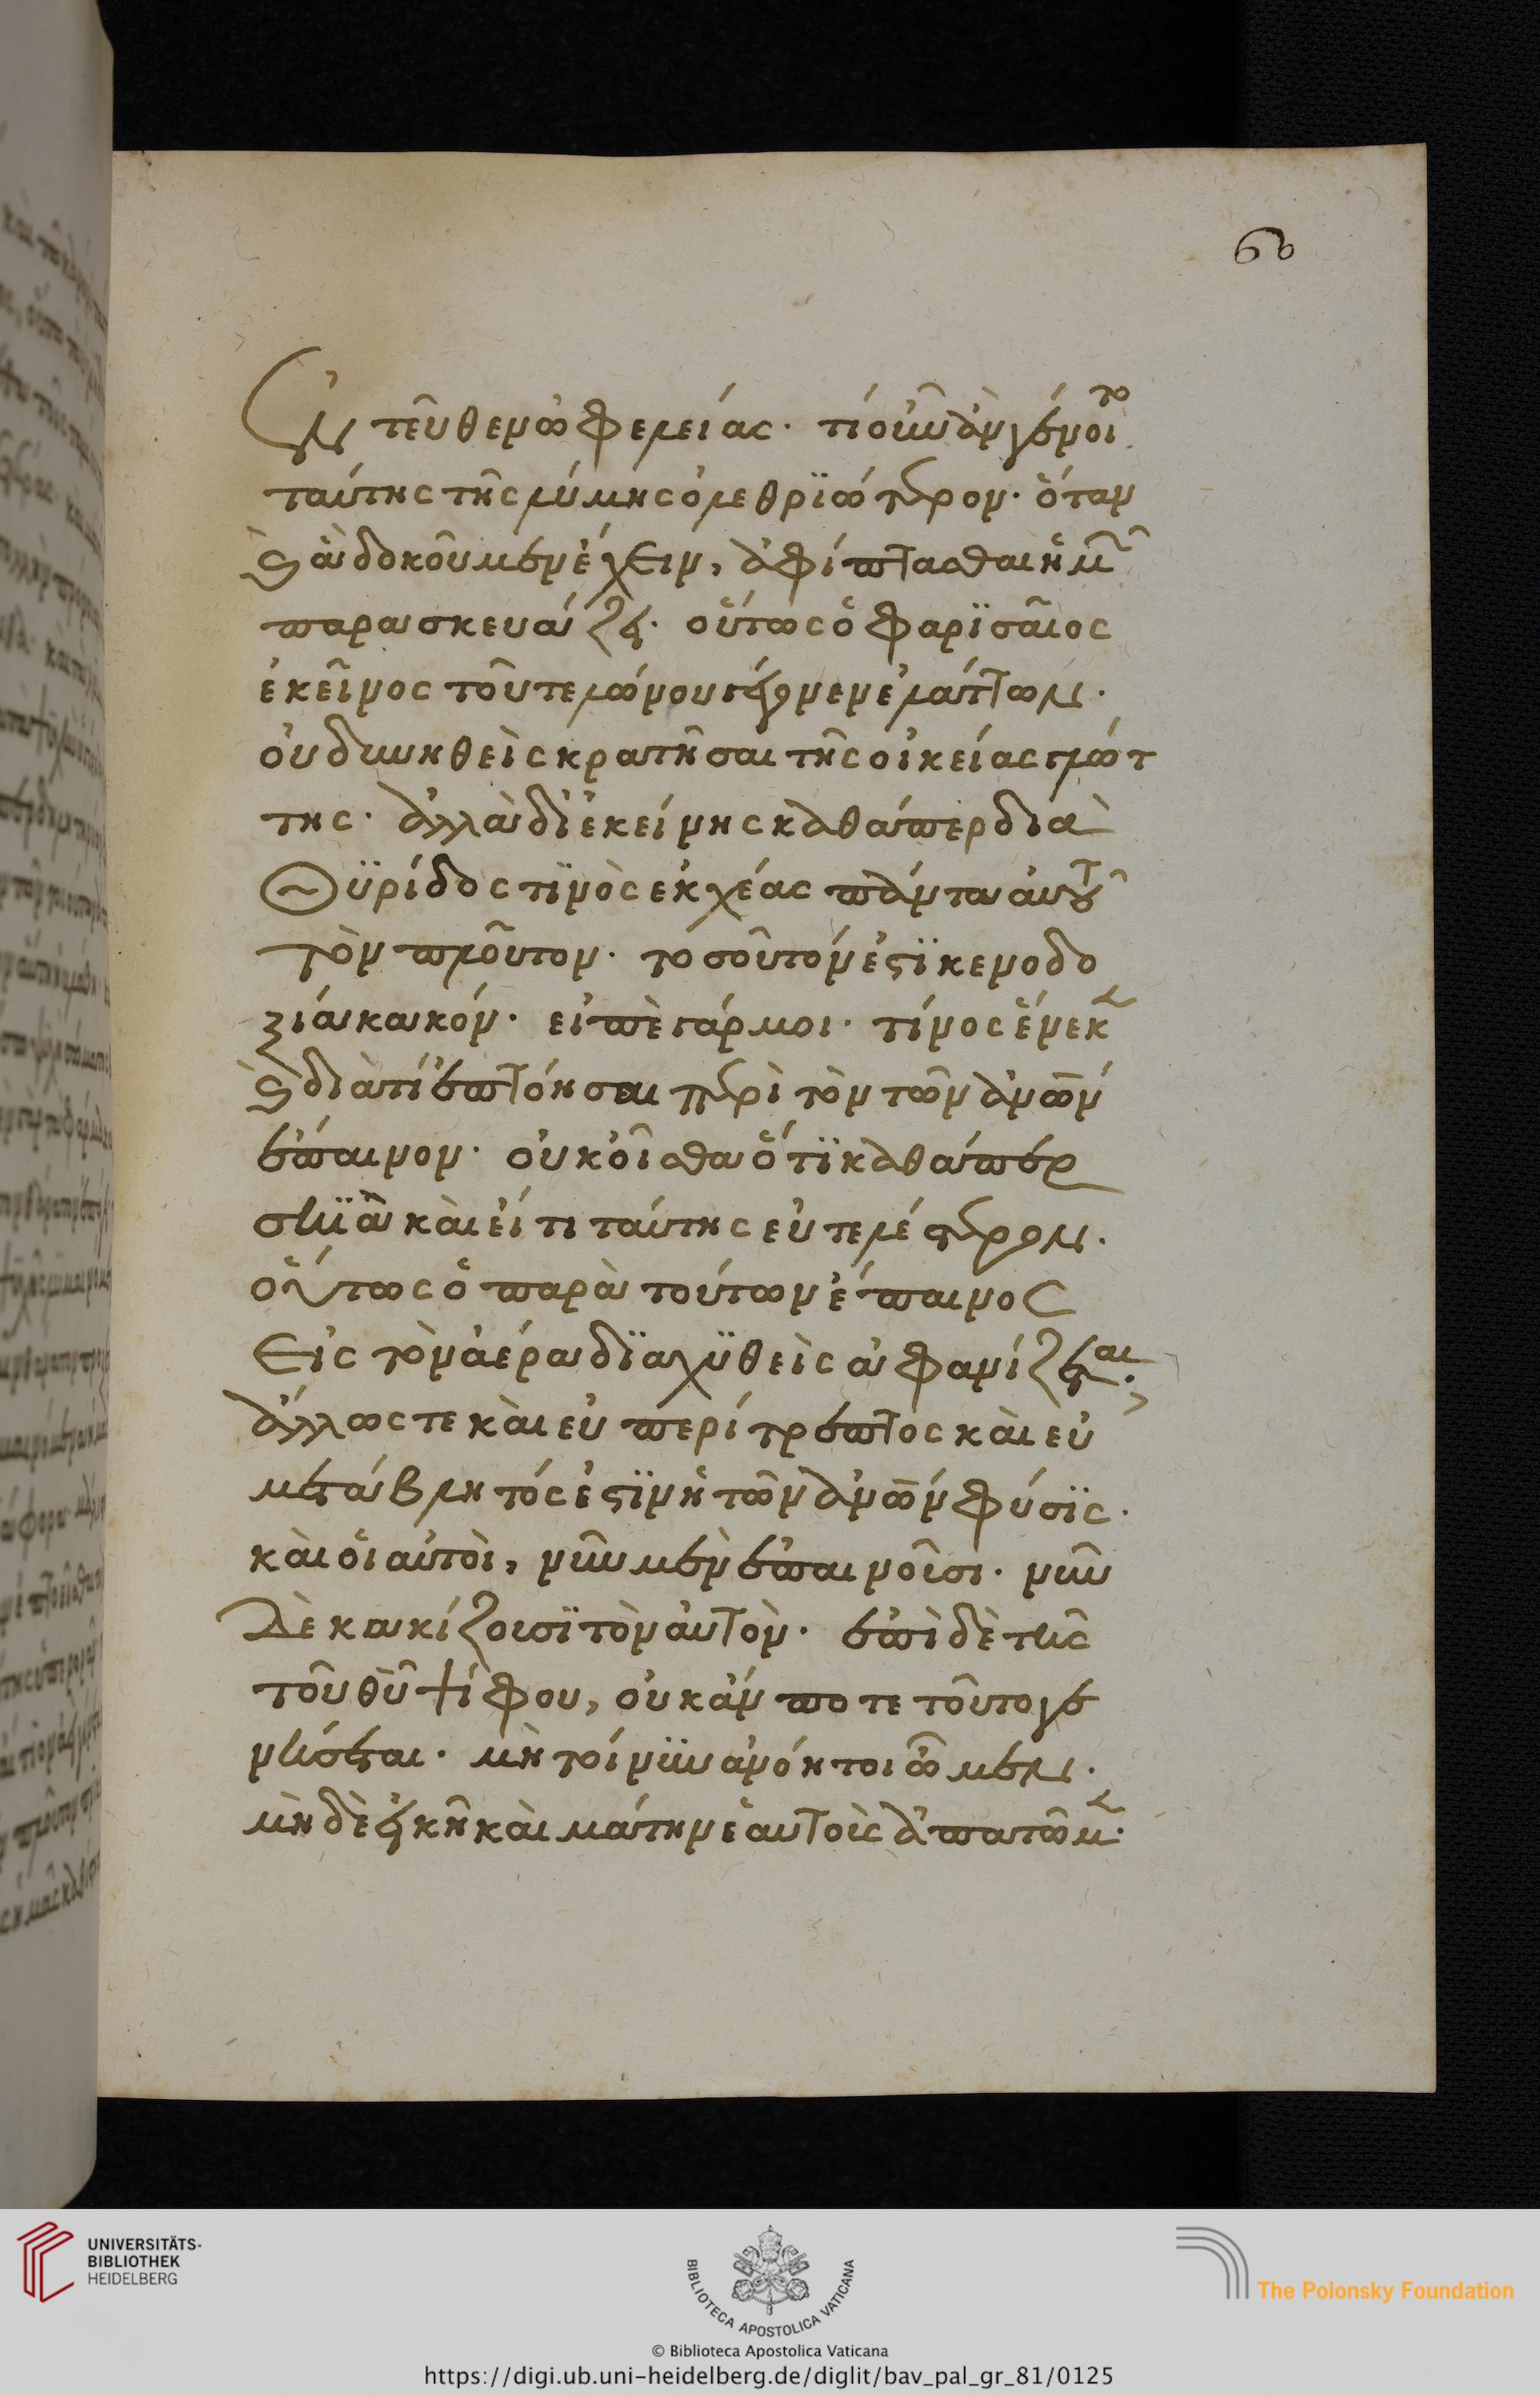 60
ἐντεῦθεν ὠφελείας· τί οὖν ἂν γένοιτο
ταύτης τῆς λύμης ὀλεθριώτερον· ὅταν
καὶ ἃ δοκοῦμεν ἔχειν, ἀφίπτασθαι ἡμῖν
παρασκευάζει· οὕτως ὁ φαρϊσαῖος
ἐκεῖνος τοῦ τελώνου γέγονεν ἐλάττων·
οὐ δυνηθεὶς κρατῆσαι τῆς οἰκείας γλώτ
της· ἀλλὰ δι' ἐκείνης καθάπερ διὰ
θϋρίδος τϊνὸς ἐκχέας πάντα αὐτοῦ
τὸν πλοῦτον· τοσοῦτόν ἐστϊ κενοδο
ξία κακόν· εἰπὲ γάρ μοι· τίνος ἕνεκεν
καὶ διὰ τί ἐπτόησαι περὶ τὸν τῶν ἀνῶν
ἔπαινον· οὐκ οἶσθα ὅτϊ καθάπερ
σκϊὰ καὶ εἴ τι ταύτης εὐτελέστερον·
οὕτως ὁ παρὰ τούτων ἔπαινος
εἰς τὸν ἀέρα δϊαχϋθεὶς ἀφανίζεται·
ἄλλως τε καὶ εὐπερίτρεπτος καὶ εὐ
μετάβλητός ἐστϊν ἡ τῶν ἀνῶν φύσϊς·
καὶ οἱ αὐτοὶ, νῦν μὲν ἐπαινοῦσι· νῦν
δὲ κακίζουσϊ τὸν αὐτὸν· ἐπὶ δὲ τῆς
τοῦ θῦ ψήφου, οὐκ ἄν ποτε τοῦτο γε
νήσεται· μὴ τοίνϋν ἀνόητοι ὦμεν·
μὴ δὲ εἰκῆ καὶ μάτην ἑαυτοὺς ἀπατῶμεν·
UNIVERSITÄTS-
BIBLIOTHEK
HEIDELBERG
BIBLIOTECA APOSTOLICA VATICANA
The Polonsky Foundation
© Biblioteca Apostolica Vaticana
https://digi.ub.uni-heidelberg.de/diglit/bav_pal_gr_81/0125